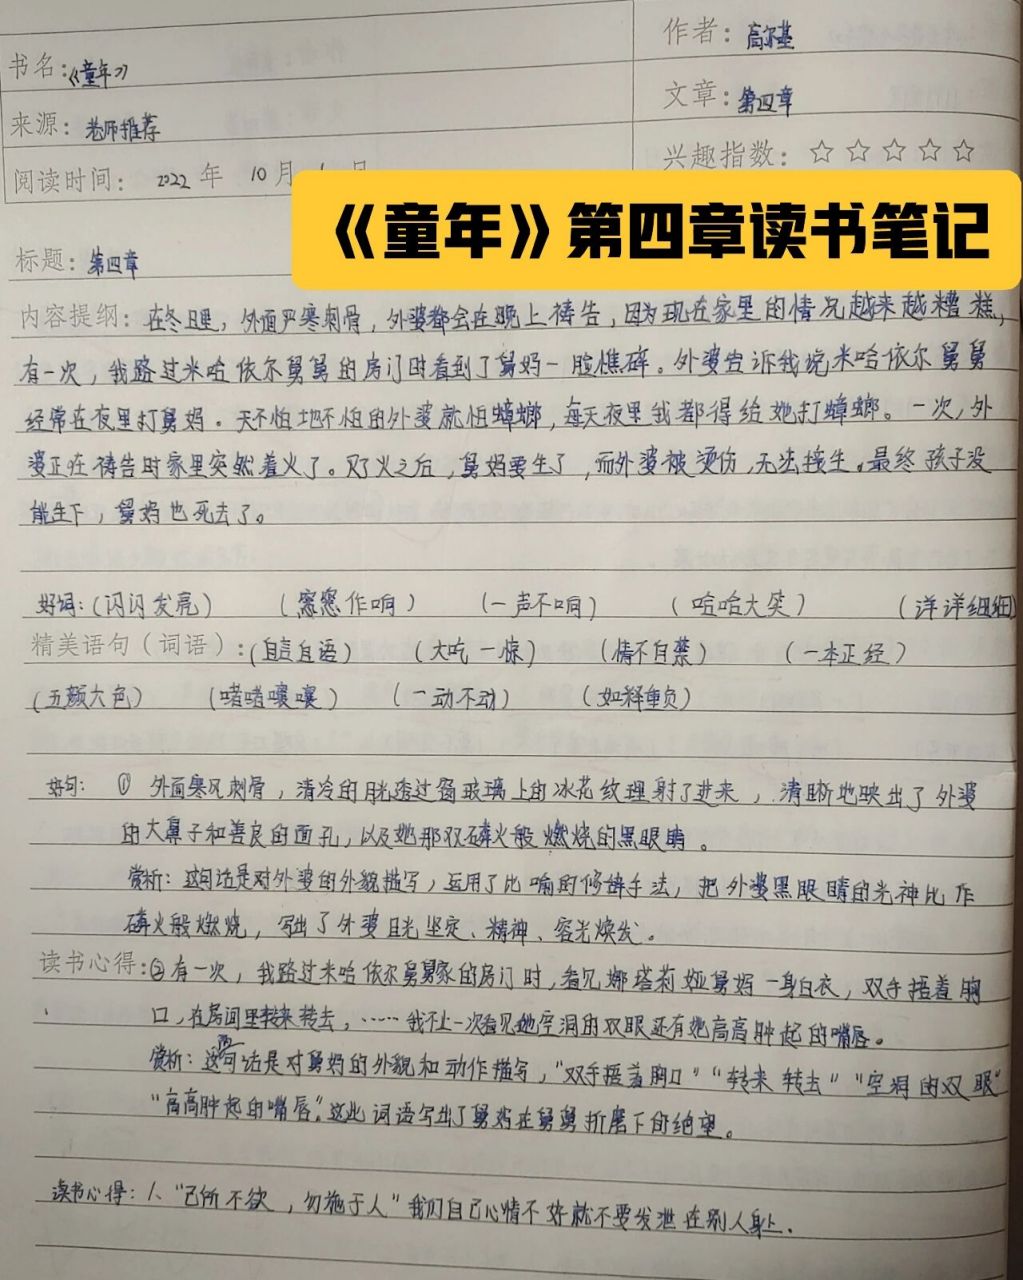 书名:《童年》
作者: 高尔基
来源: 老师推荐
文章: 第四章
阅读时间: 2022 年 10 月
兴趣指数: ☆ ☆ ☆ ☆ ☆
《童年》第四章读书笔记
标题: 第四章
内容提纲: 在冬日里，外面严寒刺骨，外婆都会在晚上祷告，因为现在家里的情况越来越糟糕，
有一次，我路过米哈依尔舅舅的房门时看到了舅妈一脸憔碎。外婆告诉我说米哈依尔舅舅
经常在夜里打舅妈。天不怕地不怕的外婆就怕蟑螂，每天夜里我都得给她打蟑螂。一次，外
婆正在祷告时家里突然着火了。灭了火之后，舅妈要生了，而外婆被烫伤，无法接生。最终孩子没
能生下，舅妈也死去了。
好词:(闪闪发亮) (窸窸作响) (一声不响) (哈哈大笑) (详详细细)
精美语句（词语）:(自言自语) (大吃一惊) (情不自禁) (一本正经)
(五颜六色) (嘈嘈嚷嚷) (一动不动) (如释重负)
好句: ① 外面寒风刺骨，清冷的月光透过窗玻璃上的冰花纹理射了进来，清晰地映出了外婆
的大鼻子和善良的面孔，以及她那双磷火般燃烧的黑眼睛。
赏析: 这句话是对外婆的外貌描写，运用了比喻的修辞手法，把外婆黑眼睛的光神比作
磷火般燃烧，写出了外婆目光坚定、精神、容光焕发。
读书心得:②有一次，我路过米哈依尔舅舅家的房门时，看见娜塔莉娅舅妈一身白衣，双手捂着胸
口，在房间里转来转去，……我不止一次看见她空洞的双眼还有她高高肿起的嘴唇。
赏析: 这两句话是对舅妈的外貌和动作描写，“双手捂着胸口”“转来转去”“空洞的双眼”
“高高肿起的嘴唇”这些词语写出了舅妈在舅舅折磨下的绝望。
读书心得: 1、“己所不欲，勿施于人”我们自己心情不好就不要发泄在别人身上.